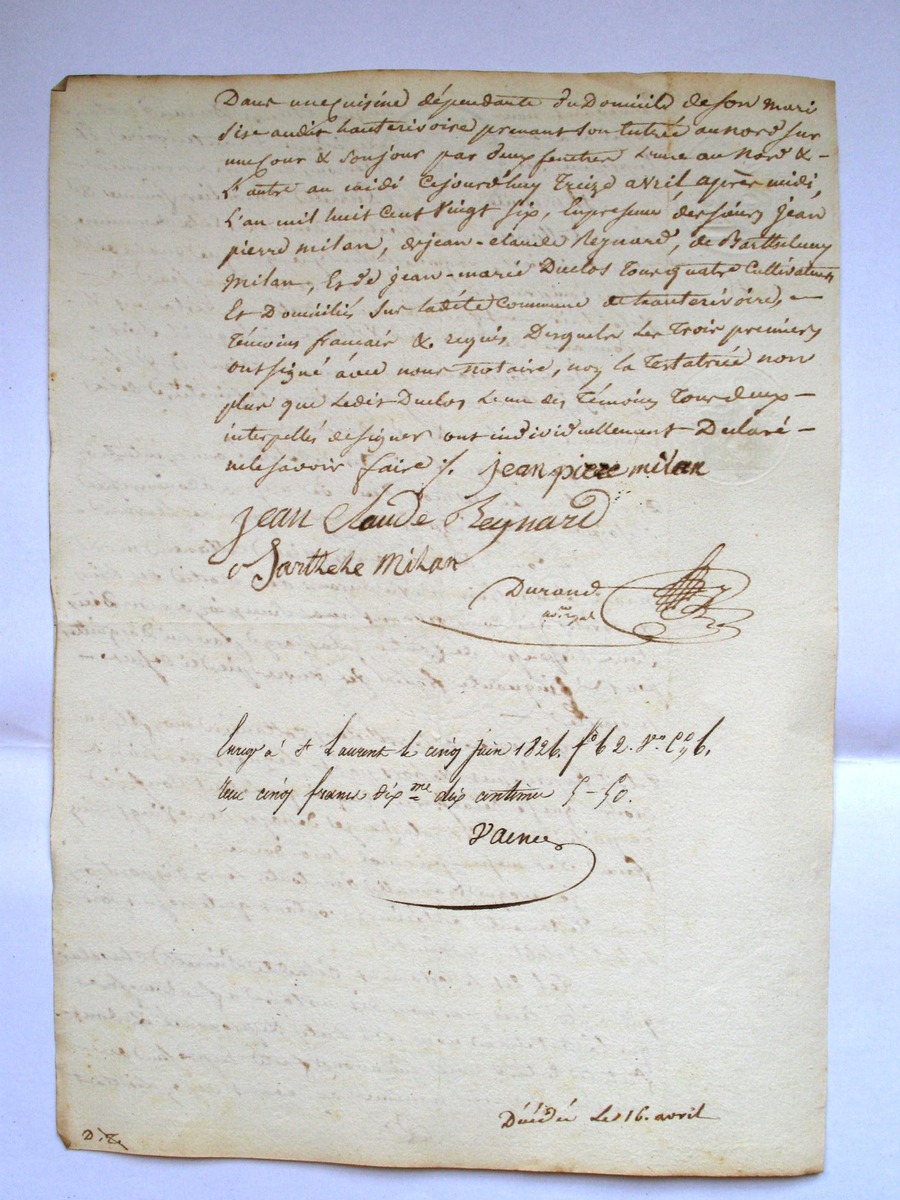 Dans une cuisine dépendante du Domicile de son mari
sise audit hauterivoire prenant son Entrée au nord sur
une cour & son jour par deux fenêtres L'une au Nord & -
L'autre au midi Cejourd'huy Treize avril après midi,
L'an mil huit Cent Vingt Six, En présence des sieurs jean
pierre milan, de jean-claude Reynard, de Barthelemy
Milan, Et de jean-marie Duclos Tous quatre Cultivateurs
Et Domiciliés sur ladite Commune de hauterivoire, -
Témoins français & requis, Desquels Les Trois premiers
ont signé avec nous notaire, non la Testatrice non
plus que Ledit Duclos L'un des Témoins Tous deux -
interpellés de signer ont individuellement Déclaré -
ne le savoir faire ./. jean pierre milan
jean Claude Reynard
Barthele Milan
Durand
Enreg. à St Laurent le cinq juin 1826. fo 62 Vo Ce 6.
Reçu cinq francs dixme dix centimes 5-50.
Décédée Le 16. avril